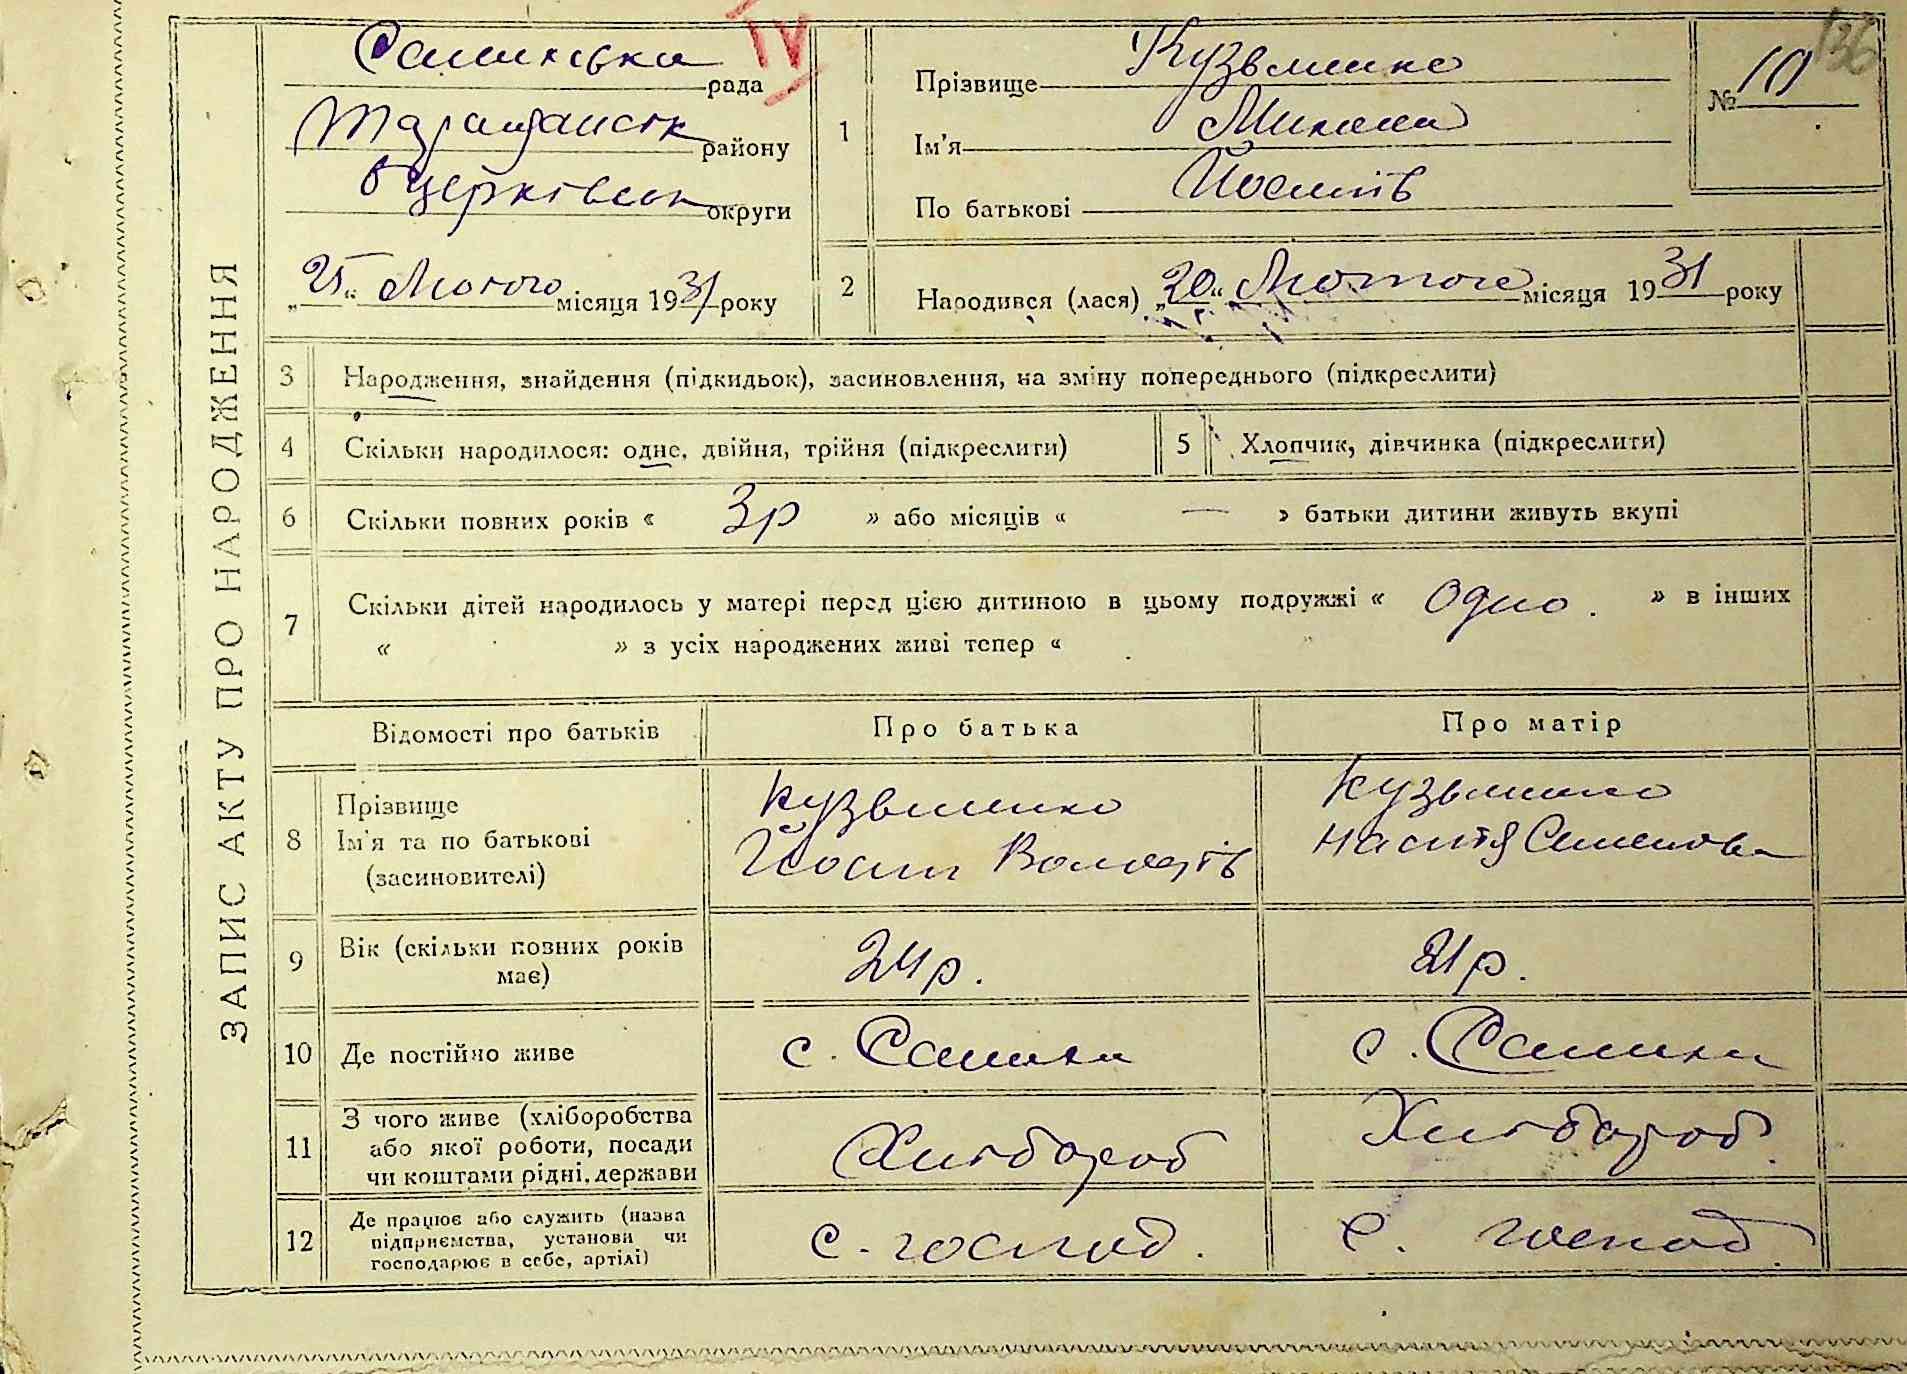 ЗАПИС АКТУ ПРО НАРОДЖЕННЯ
IV
136
рада
Таращанськ району
Бцерківськ округи
„25“ Лютого місяця 1931 року
1
Прізвище Кузьменко
Ім'я Микола
По батькові Йосипів
№ 10
2
Народився (лася) „20“ Лютого місяця 1931 року
3 Народження, знайдення (підкидьок), засиновлення, на зміну попереднього (підкреслити)
4 Скільки народилося: одне, двійня, трійня (підкреслити)
5 Хлопчик, дівчинка (підкреслити)
6 Скільки повних років « 3р » або місяців « — » батьки дитини живуть вкупі
7 Скільки дітей народилось у матері перед цією дитиною в цьому подружжі « Одно. » в інших
« » з усіх народжених живі тепер «
Відомості про батьків Про батька Про матір
8
Прізвище
Ім'я та по батькові
(засиновителі)
Кузьменко
Йосип
Кузьменко
Настя Семенова
9
Вік (скільки повних років
має)
24р.
21р.
10 Де постійно живе
с.
с.
11
З чого живе (хліборобства
або якої роботи, посади
чи коштами рідні, держави
Хлібороб
Хлібороб
12
Де працює або служить (назва
підприємства, установи чи
господарює в себе, артілі)
с. господ.
с. господ